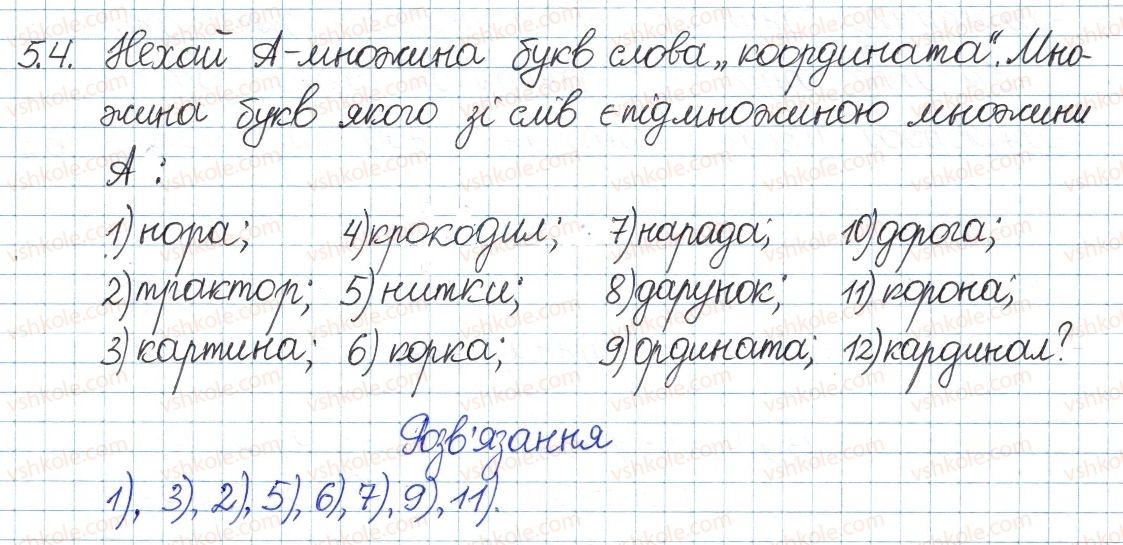 5.4. Нехай А-множина букв слова „координата“. Мно-
жина букв якого зі слів є підмножиною множини
А :
1) нора; 4) крокодил; 7) нарада; 10) дорога;
2) трактор; 5) нитки; 8) дарунок; 11) корона;
3) картина; 6) корка; 9) ордината; 12) кардинал?
Розв'язання
1), 3), 2), 5), 6), 7), 9), 11).